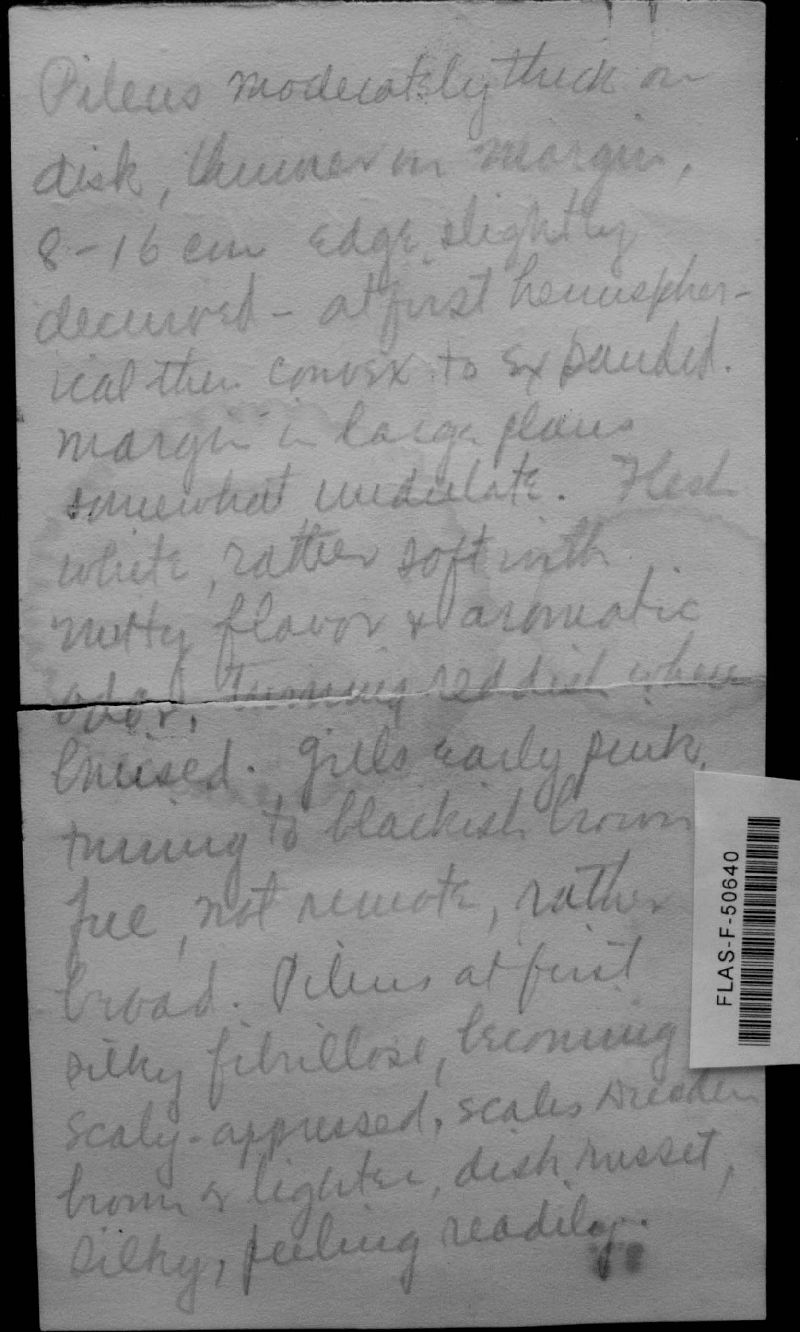 Pileus moderately thick on
disk, thinner on margin,
8-16 cm edge slightly
decurved - at first hemispher-
ical then convex to expanded.
margin in large plants
somewhat undulate. Flesh
white, rather soft with
nutty flavor & aromatic
odor, turning reddish when
bruised. Gills early pink,
turning to blackish brown
free, not remote, rather
broad. Pileus at first
silky fibrillose, becoming
scaly-appressed, scales Dresden
brown or lighter, disk russet,
silky, peeling readily.
FLAS-F-50640